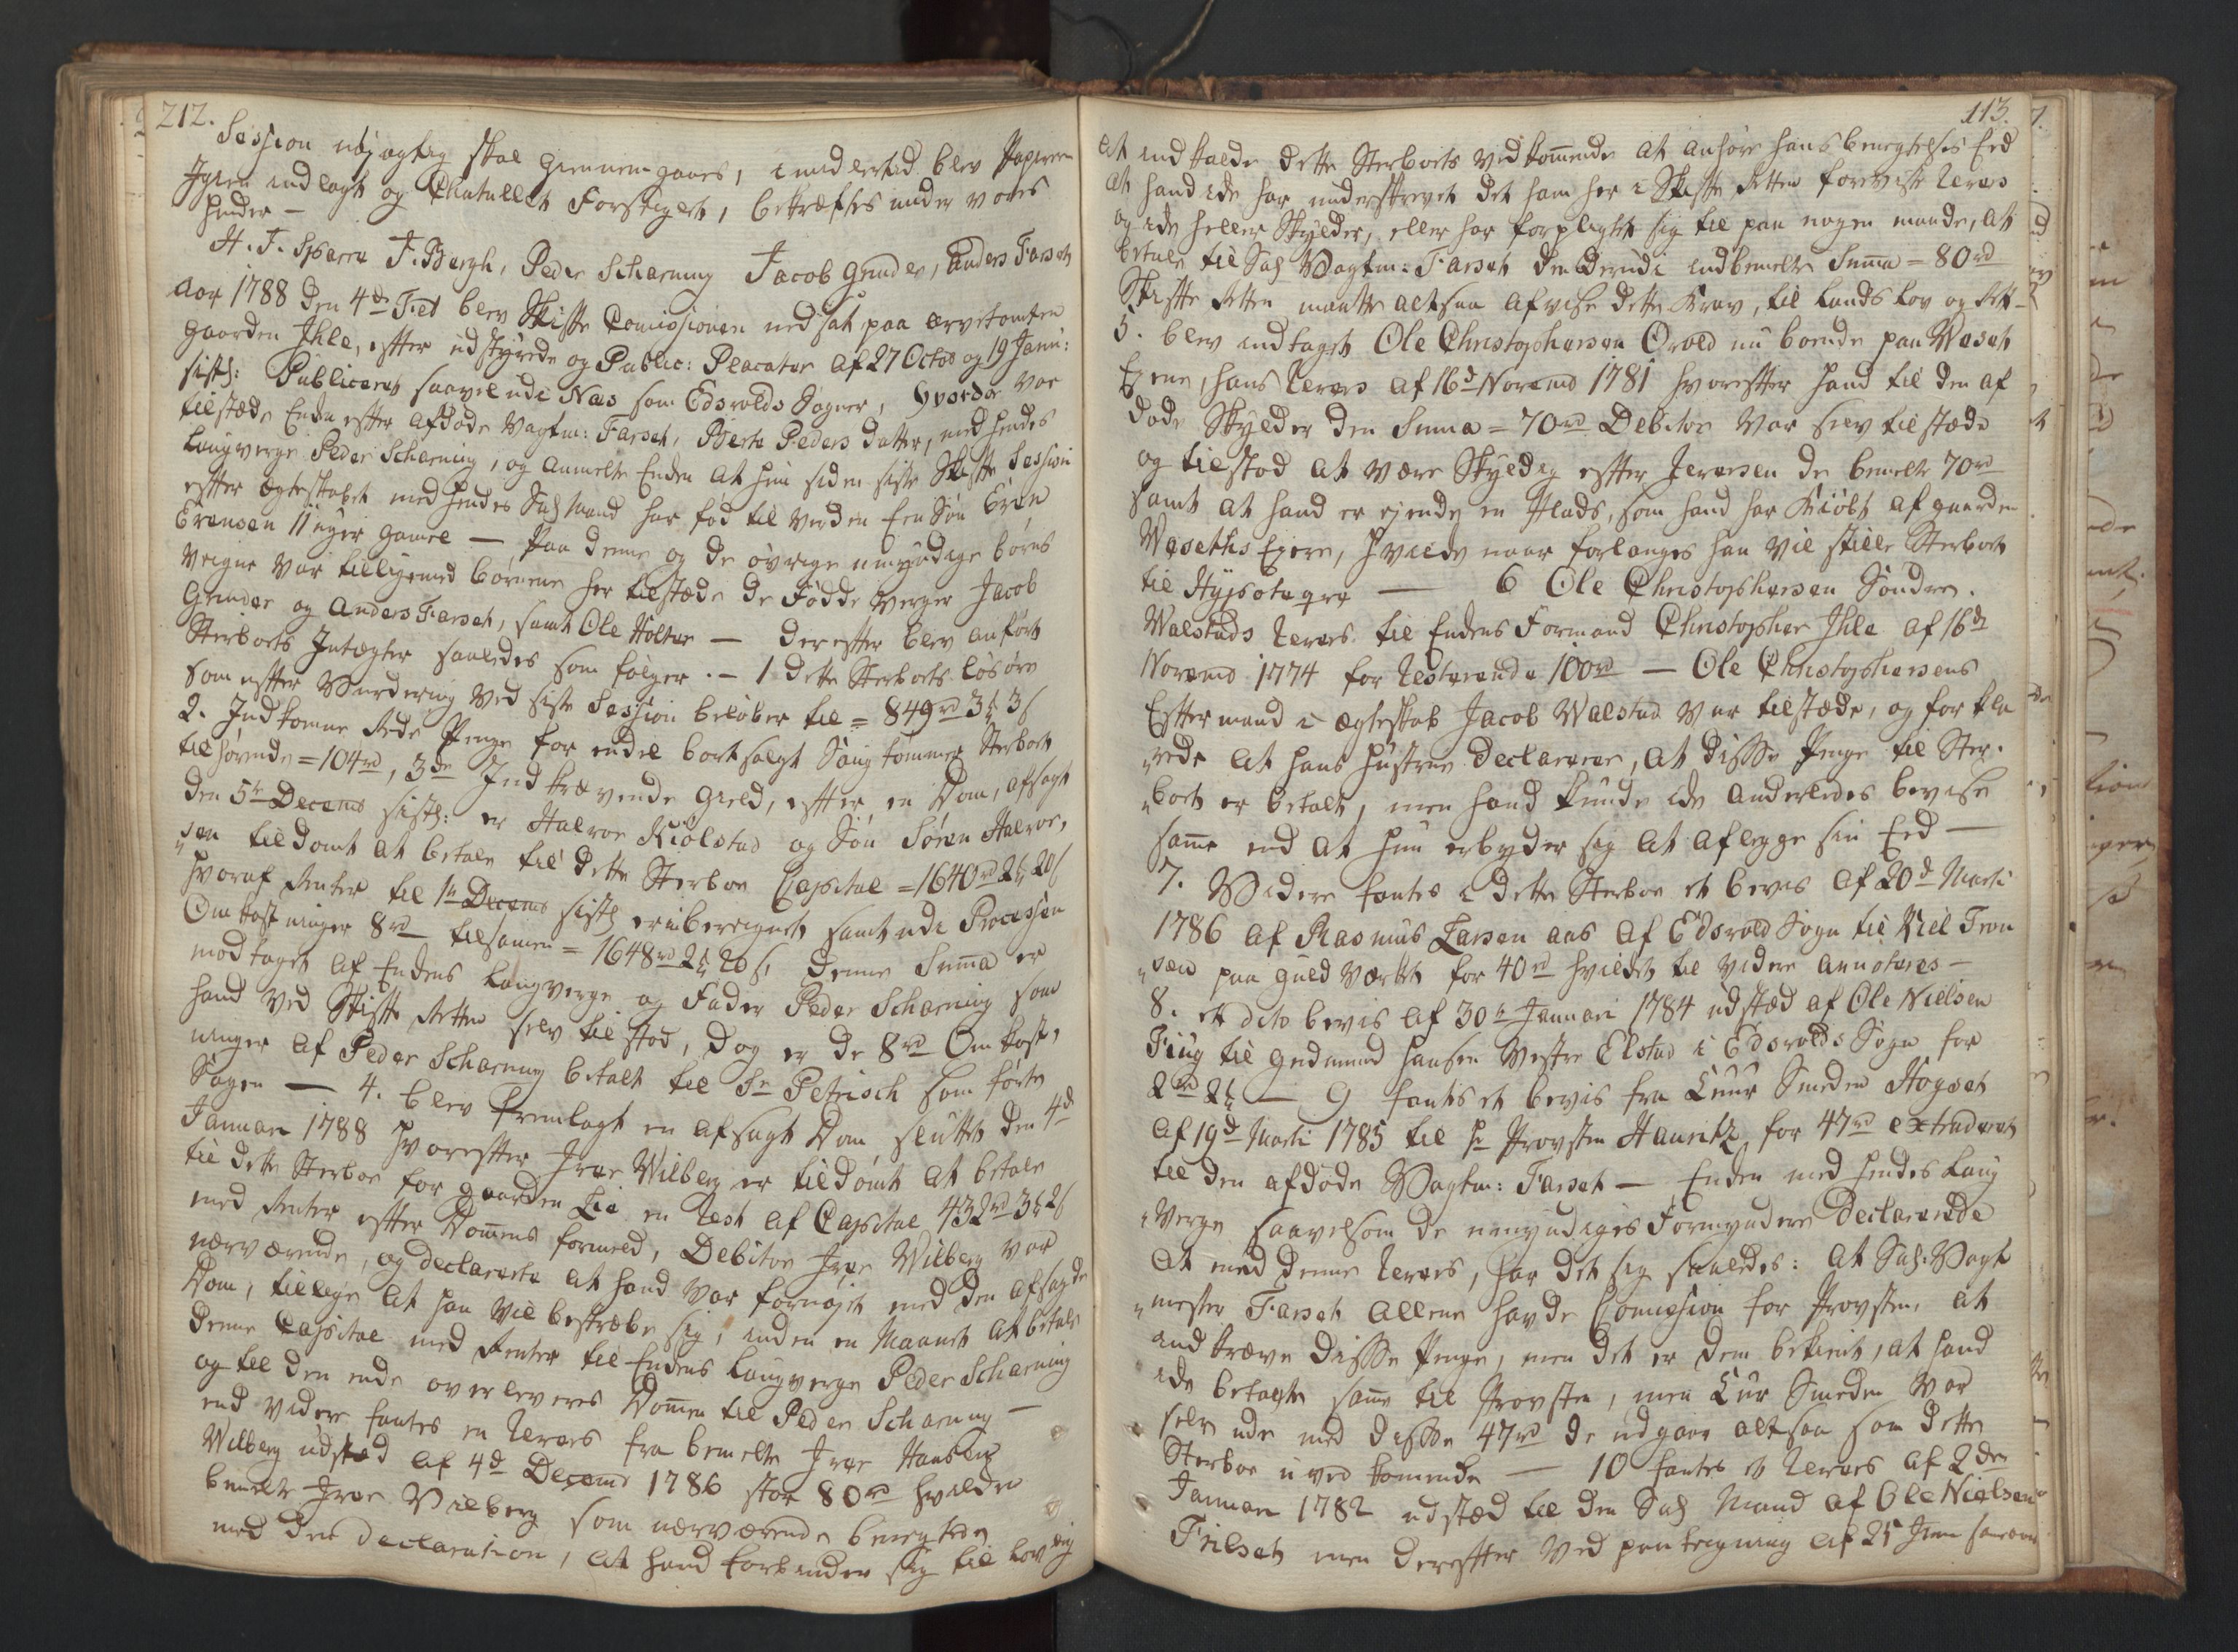 212.
Session nøjagtig skal giennemgaaes, imidlertid blev Papirerne
Igien indlagt og Chatullet Forseiglet, bekræftes under vores
Hender —
H. J. Sparre J. Bergh, Peder Scharning Jacob Grinder, Anders Farseth
Aar 1788 den 4de Feb blev Skifte Comissionen nedsat paa Arvetomten
gaarden Ihle, efter udstyrede og Public: Placater af 27 Octob og 19 Janu:
sistl: Publiceret saavel udi Næs som Edsvolds Sogner, hvorda var
tilstæde Enken efter afdøde Vagtm: Farseth, Berte Peders datter, med hendes
Laugverge Peder Scharning, og anmelte Enken at hun siden siste Skifte Session
efter ægteskabet med hendes Sal Mand har fød til verden En Søn Even
Evensen 11 uger gamel — Paa denne og de øvrige umyndige børns
veigne var tilligemed børnene her tilstæde de Fødde verger Jacob
Grinder og Anders Farseth, samt Ole Holter — derefter blev anført
Sterboets Indtægter saaledes som følger. — 1 dette Sterboets løsøre
som efter Vurdering ved siste Session beløber til = 849rd 3 3s
2. Indkomne Rede Penge for endel bortsolgt Saugtømmer Sterboet
tilhørende = 104rd, 3de Indkrævende gield, efter en Dom, afsagt
den 5te Decemb sistl: er Halvor Kiølstad og Søn Søren Halvor,
„sen tildømt at betale til dette Sterboe Capital = 1640rd 2 20s
hvoraf Renter til 1te Decemb sistl er iberegnet samt udi Processen
Omkostninger 8rd tilsamen = 1648rd 2 20s, denne Suma er
modtaget af Enkens Laugverge og Fader Peder Scharning som
hand ved Skifte Retten selv tilstod, dog er de 8rd Omkost,
ninger af Peder Scharning betalt til Sr Petrisch som førte
Sagen — 4. blev Fremlagt en afsagt Dom, sluttet den 4d
Januari 1788 hvorefter Iver Wilberg er tildømt at betale
til dette Sterboe for gaarden Lie en Rest af Capital 432rd 3 2s
med Renter efter Dommens formeld, Debitor Iver Wilberg var
nærværende, og declarerte at hand var fornøjet med den afsagde
Dom, tillige at han vil bestræbe sig, inden en Maanet at betale
denne Capital med Renter til Enkens Laugverge Peder Scharning
og til den ende overleveres Dommen til Peder Scharning —
end videre fantes en Revers fra bemelte Iver Hansen
Wilberg udsted af 4d Decemb 1786 stor 80rd hvilden
bemelte Iver Vilberg som nærværende benegtede
med den declaration, at hand forbinder sig til lovlig
113.
at indkalde dette Sterboets vedkommende at anhøre hans benegtelses Eed
at hand icke har underskrevet det ham her i Skifte Retten foreviste Revers
og icke heller Skylder, eller har forpligtet sig til paa nogen maade, at
betale til Sal Vagtm: Farset den derudi indbemelte Suma = 80rd
Skifte Retten maatte altsaa afvise dette Krav, til Lands Lov og Rett —
5. blev indtaget Ole Christophersen Orold nu boende paa Waseth
Ejere, hans Revers af 16d Novemb 1781 hvorefter hand til den af
døde Skylder den Suma = 70rd Debitor var selv tilstæde
og tilstod at være Skyldig efter Reversen de bemelte 70rd
samt at hand er ejende en Plads, som hand har Kiøbt af gaarden
Waseths Ejere, hvilcke naar forlanges han vil stille Sterboet
til Hypoteqve — 6 Ole Christophersen Søndre
Walstads Revers til Enkens Formand Christopher Ihle af 16d
Novemb 1774 for Resterende 100rd — Ole Christophersens
Efter mand i ægteskab Jacob Walstad var tilstæde, og forkla
„rede at hans Hustrue Declarerer, at disse Penge til Ster.
„boet er betalt, men hand kunde icke anderledes bevise
samme end at hun erbyder sig at aflegge sin Eed —
7. Videre fantes i dette Sterboe et bevis af 20d Marti
1786 af Rasmus Larsen aas af Edsvold Sogn til Niel Tron
„sen paa guld Værket for 40rd hvilcket til videre annoteres —
8. et dito bevis af 30te Januari 1784 udsted af Ole Nielsen
Fiug til Gudmund Hansen Vestre Elstad i Edsvolds Sogn for
2rd 2 — 9 fantes et bevis fra Luur Smeden Hogset
af 19d Marti 1785 til Hr Provsten Hauritz, for 47rd extraderet
til den afdøde Vagtm: Farset — Enken med hendes Laug
„Verge saavelsom de umyndiges Formyndere declarerede
at med denne Revers, har det sig saaledes: at Sal: Vagt
„mester Farset allene havde Comission for Provsten, at
indkræve disse Penge, men det er dem bekient, at hand
icke betalte samme til Provsten, men Luur Smeden var
selv ude med disse 47rd de udgaar altsaa som dette
Sterboe uvedkomende — 10 fantes et Revers af 2den
Januari 1782 udsted til den Sal Mand af Ole Nielsen
Trilset men derefter ved paategning af 25 Juni samme